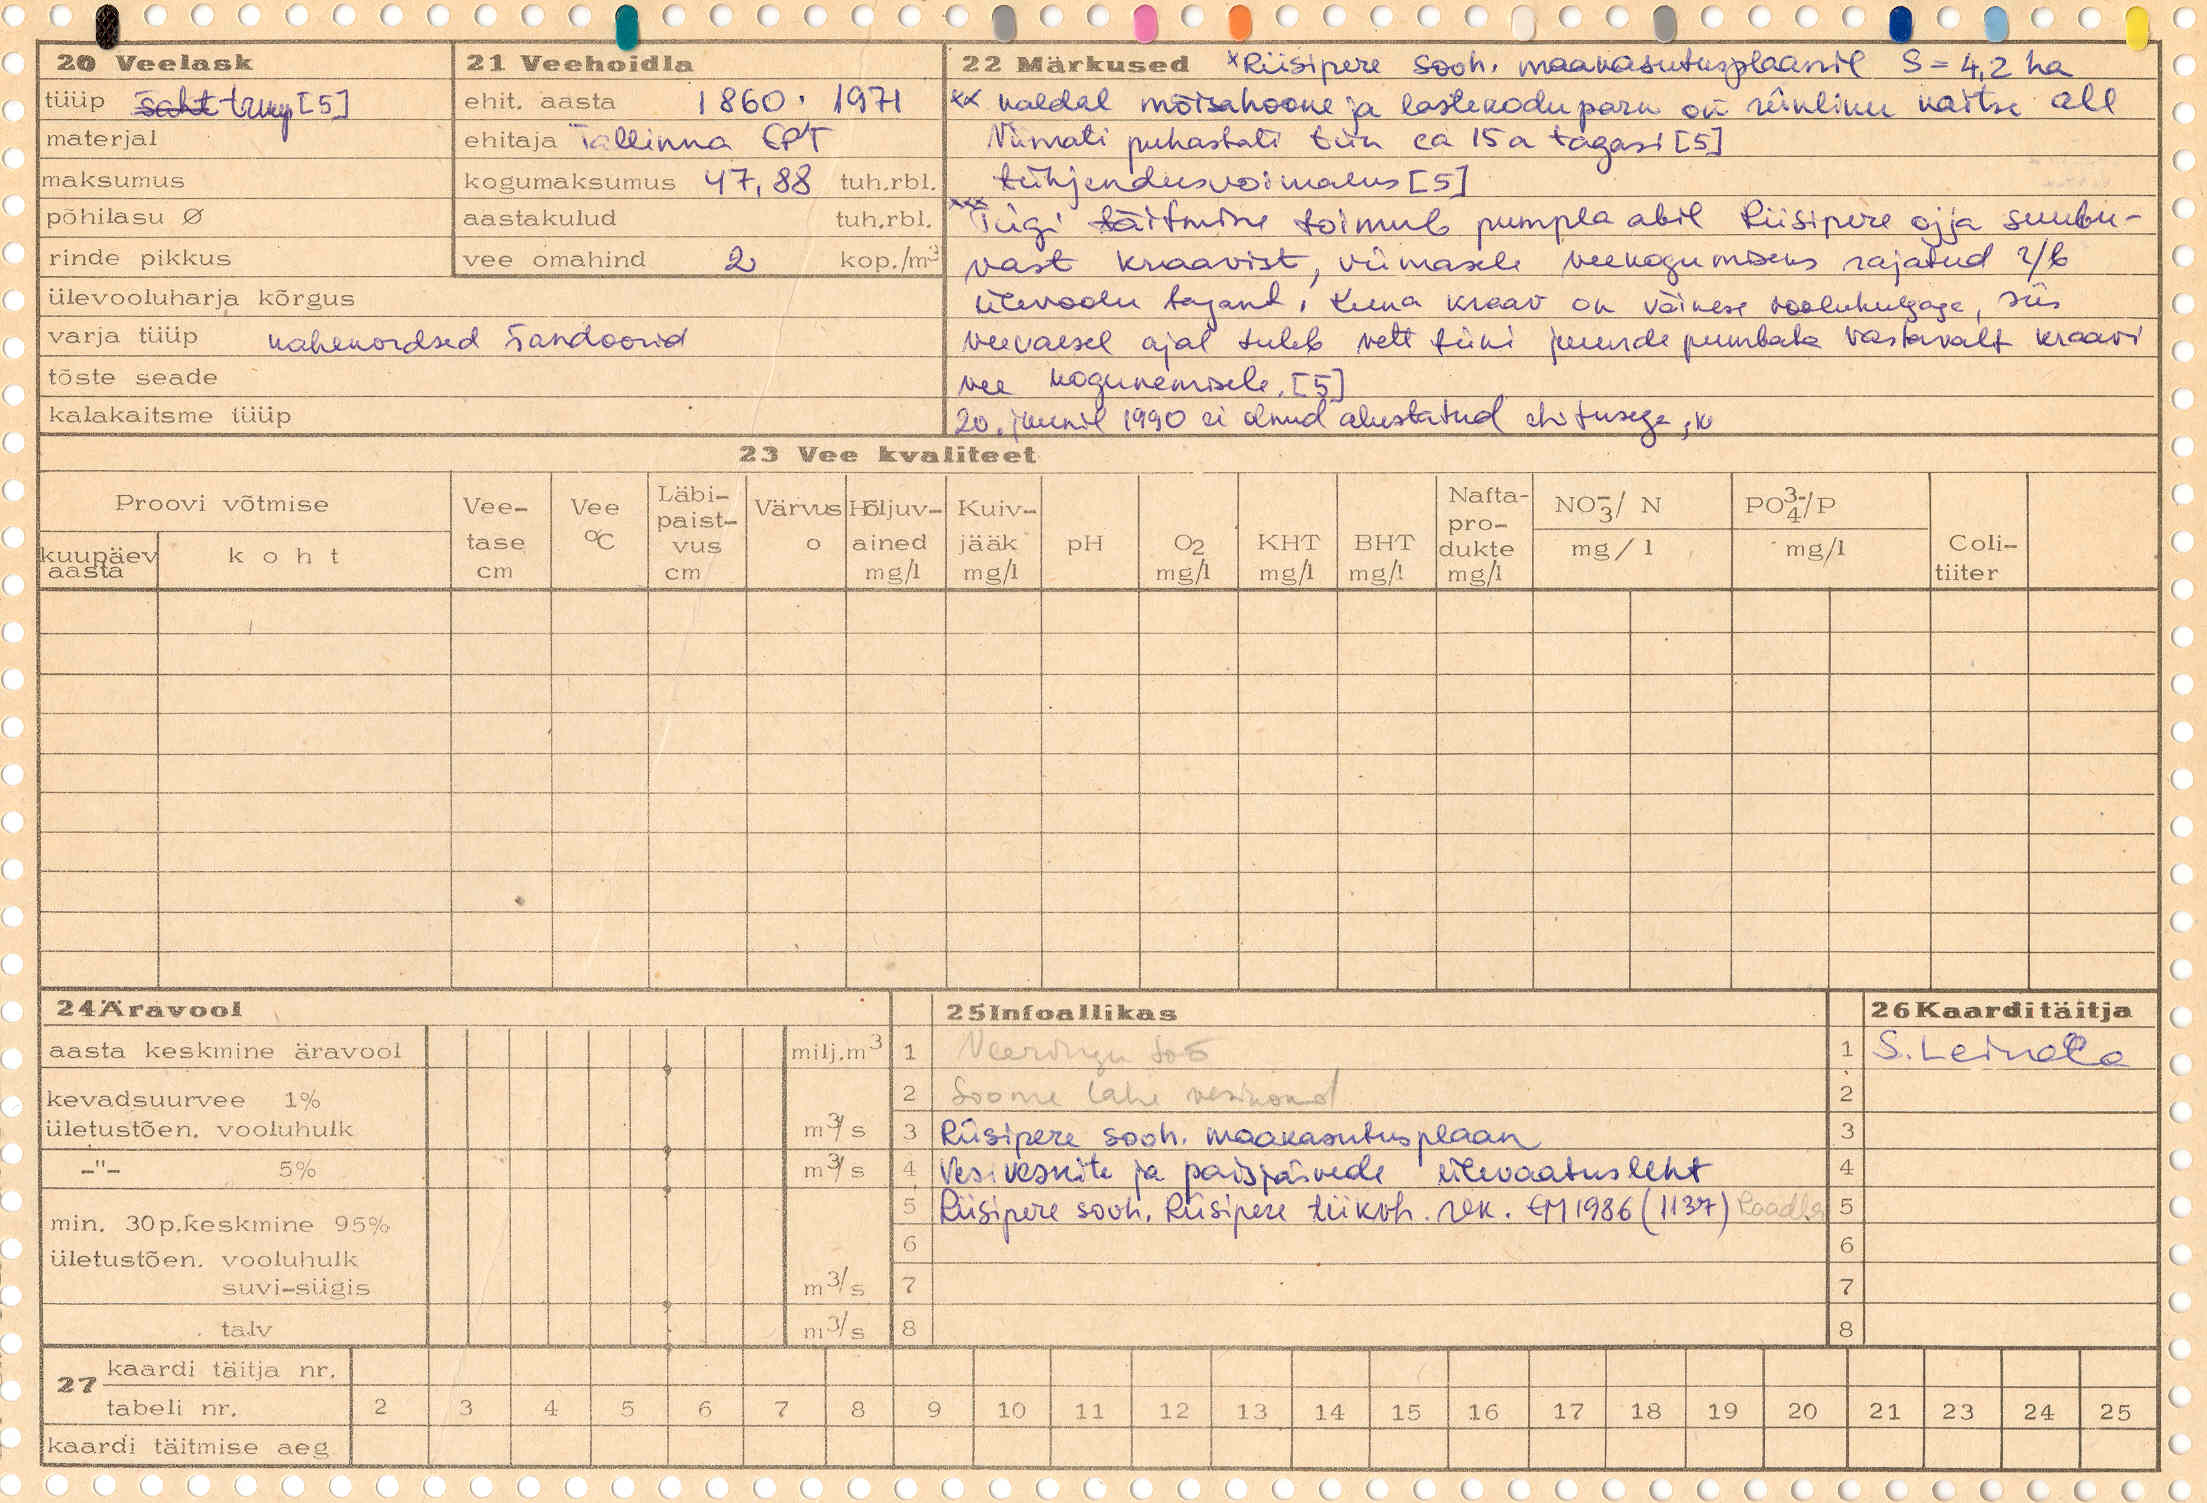 20 Veelask
tüüp šaht trupp [5]
materjal
maksumus
põhilasu Ø
rinde pikkus
ülevooluharja kõrgus
varja tüüp kahekordsed šandoorid
tõste seade
kalakaitsme tüüp
21 Veehoidla
ehit. aasta 1860. 1971
ehitaja Tallinna EPT
kogumaksumus 47,88 tuh.rbl.
aastakulud tuh.rbl.
vee omahind 2 kop./m³
22 Märkused × Riisipere sooh. maakasutusplaanil S = 4,2 ha
×× kaldal mõisahoone ja lastekodu park on riikliku kaitse all
Viimati puhastati tiik ca 15 a tagasi [5]
tühjendusvõimalus [5]
××× Tiigi täitmine toimub pumpla abil Riisipere ojja suubu-
vast kraavist, viimasele veekogumiseks rajatud r/b
ülevoolu tagant. Kuna kraav on väikese vooluhulgaga, siis
veevaesel ajal tuleb vett tiiki juurde pumbata vastavalt kraavi
vee kogunemisele. [5]
20. juunil 1990 ei olnud alustatud ehitusega
23 Vee kvaliteet
Proovi võtmise
kuupäev aasta
koht
Vee-tase cm
Vee °C
Läbi-paist-vus cm
Värvus o
Hõljuv-ained mg/l
Kuiv-jääk mg/l
pH
O2 mg/l
KHT mg/l
BHT mg/l
Nafta-pro-dukte mg/l
NO3-/ N mg/l
PO4 3-/P mg/l
Coli-tiiter
24 Äravool
aasta keskmine äravool milj.m³
kevadsuurvee 1%
ületustõen. vooluhulk m³/s
-"- 5% m³/s
min. 30p.keskmine 95%
ületustõen. vooluhulk
suvi-sügis m³/s
talv m³/s
25 Infoallikas
1
2 Soome lahe vesikond
3 Riisipere sooh. maakasutusplaan
4 Vesiveskite ja paisjärvede ülevaatusleht
5 Riisipere sooh. Riisipere tiik oh. rek. EM 1986 (1137)
6
7
8
26 Kaarditäitja
1 S. Leinola
2
3
4
5
6
7
8
27 kaardi täitja nr.
tabeli nr. 2 3 4 5 6 7 8 9 10 11 12 13 14 15 16 17 18 19 20 21 23 24 25
kaardi täitmise aeg